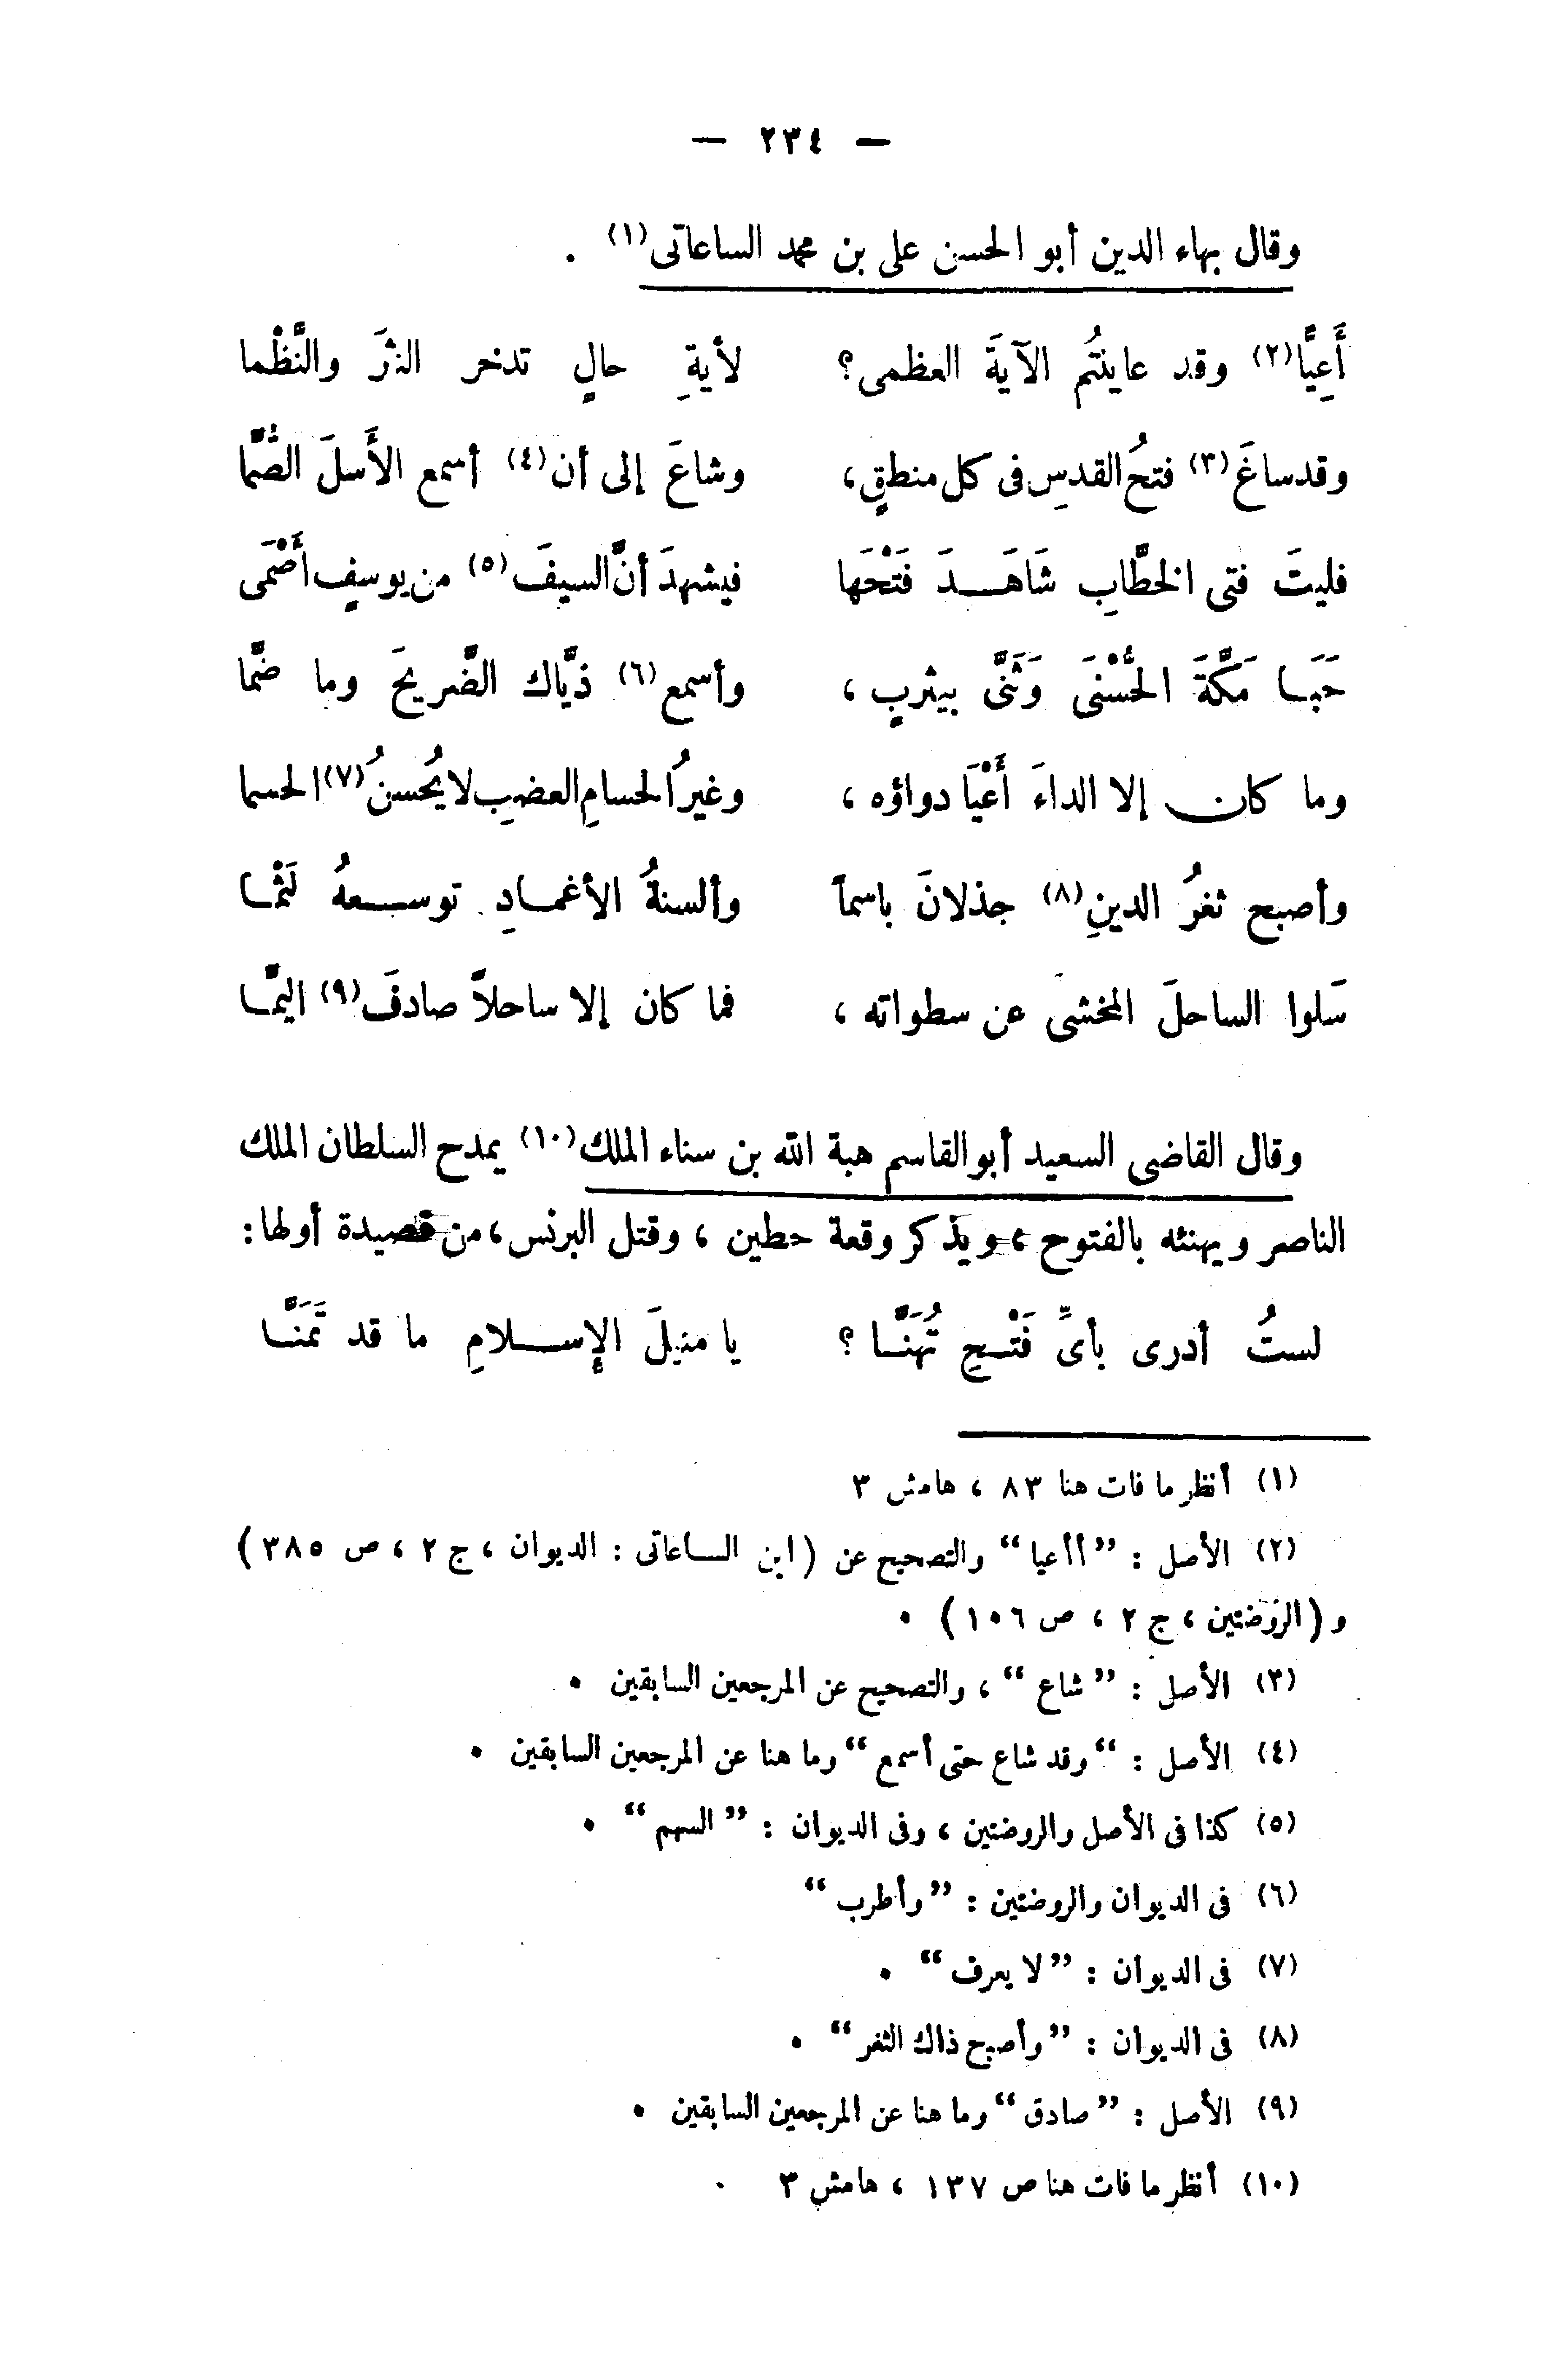 — ٢٣٤ —
وقال بهاء الدين أبو الحسن على بن محمد الساعاتى (١) .
أَعِيًّا (٢) وقد عاينتُم الآيةَ العظمى؟ لأيةِ حالٍ تدخر النثرَ والنَّظْما
وقد ساغَ (٣) فتحُ القدسِ فى كل منطقٍ، وشاعَ إلى أن (٤) أسمع الأَسلَ الصُّمَّا
فليتَ فتى الخطَّابِ شَاهَدَ فَتْحَها فيشهدَ أنَّ السيفَ (٥) من يوسفٍ أَصْمَى
حَبَا مَكَّةَ الحُسْنَى وَثَنَّى بيثربٍ، وأسمع (٦) ذيَّاك الضَّريحَ وما ضمَّا
وما كان إلا الداءَ أَعْيَا دواؤه، وغيرُ الحسامِ العضبِ لا يُحسنُ (٧) الحسما
وأصبح ثغرُ الدينِ (٨) جذلانَ باسماً وألسنةُ الأغمادِ توسعهُ لَثْما
سَلوا الساحلَ المخشى عن سطواته، فما كان إلا ساحلاً صادفَ (٩) اليمَّا
وقال القاضى السعيد أبو القاسم هبة الله بن سناء الملك (١٠) يمدح السلطان الملك
الناصر ويهنئه بالفتوح، ويذكر وقعة حطين، وقتل البرنس، من قصيدة أولها:
لستُ أدرى بأىِّ فَتْحٍ تُهَنَّا؟ يا منيلَ الإسلامِ ما قد تَمَنَّا
(١) أنظر ما فات هنا ٨٣، هامش ٣
(٢) الأصل: "أأعيا" والتصحيح عن (ابن الساعاتى: الديوان، ج ٢، ص ٣٨٥)
و(الروضتين، ج ٢، ص ١٠٦) .
(٣) الأصل: "شاع"، والتصحيح عن المرجعين السابقين .
(٤) الأصل: "وقد شاع حتى أسمع" وما هنا عن المرجعين السابقين .
(٥) كذا فى الأصل والروضتين، وفى الديوان: "السهم" .
(٦) فى الديوان والروضتين: "وأطرب"
(٧) فى الديوان: "لا يعرف" .
(٨) فى الديوان: "وأصبح ذاك الثغر" .
(٩) الأصل: "صادق" وما هنا عن المرجعين السابقين .
(١٠) أنظر ما فات هنا ص ١٣٧، هامش ٣ .